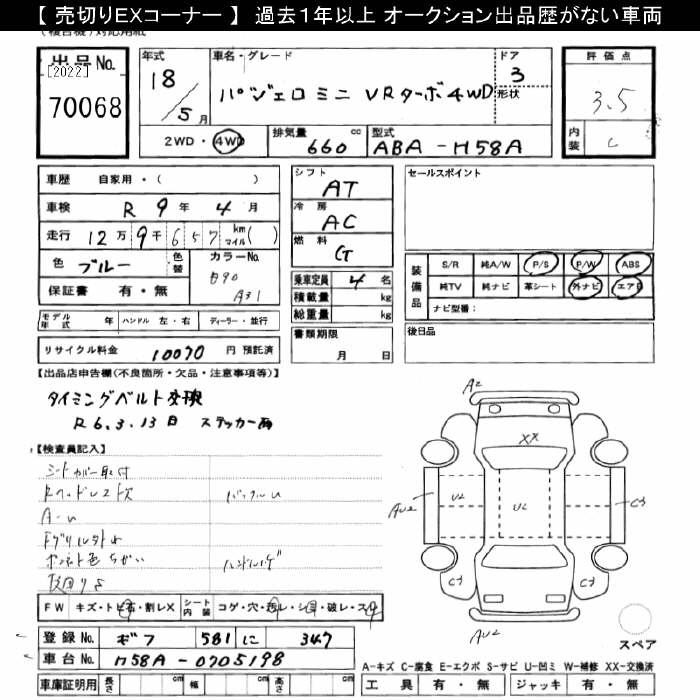 【 売切りEXコーナー 】 過去1年以上 オークション出品歴がない車両
出品No.
[2022]
70068
年式
18
5月
車名・グレード
パジェロミニ VRターボ4WD
ドア
3
形状
2WD・4WD
排気量
660 cc
型式
ABA-H58A
評価点
3.5
内装
C
車歴 自家用・( )
車検 R 9年 4月
走行 12万 9千 6 5 7 km マイル( )
色 ブルー
色替
カラーNo.
A31
保証書 有・無
シフト
AT
冷房
AC
燃料
G
乗車定員 4名
積載量 kg
総重量 kg
セールスポイント
装備品
S/R 純A/W P/S P/W ABS
純TV 純ナビ 革シート 外ナビ エアB
ナビ型番:
モデル年式 年 ハンドル 左・右 ディーラー・並行
リサイクル料金 10070 円 預託済
書類期限
月 日
後日品
【出品店申告欄(不良箇所・欠品・注意事項等)】
タイミングベルト交換
R6.3.13 ステッカー有
【検査員記入】
シートカバー取付
A-U
ボンネット色ちがい
ハンドルハゲ
FW キズ・トビ石・割レX シート内装 コゲ・穴・
登録No. ギフ 581 に 347
車台No. H58A-0705198
車庫証明用 長さ cm 幅 cm 高さ cm
A2
XX
AU2
U2
U2
C3
C3
C3
AU2
スペア
A-キズ C-腐食 E-エクボ S-サビ U-凹ミ W-補修 XX-交換済
工具 有・無 ジャッキ 有・無